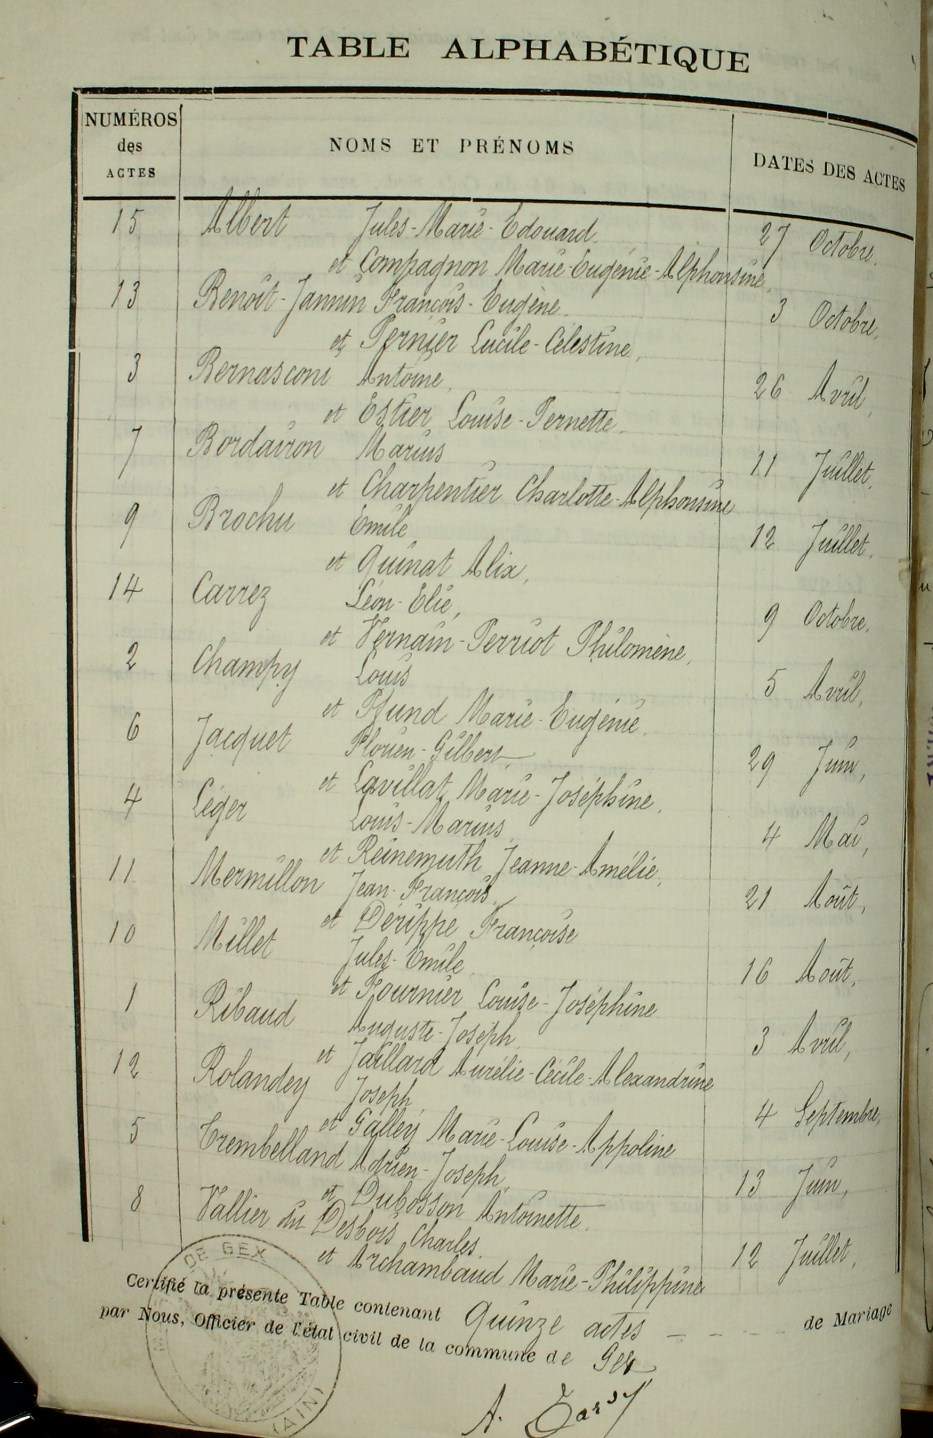 TABLE ALPHABÉTIQUE
NUMÉROS des ACTES
NOMS ET PRÉNOMS
DATES DES ACTES
15 Albert Jules-Marie-Edouard 27 Octobre.
et Compagnon Marie-Eugénie-Alphonsine,
13 Benoit-Jannin François-Eugène 3 Octobre,
et Pernier Lucile-Celestine,
3 Bernasconi Antoine, 26 Avril,
et Estier Louise-Pernette
7 Bordairon Marius 11 Juillet.
et Charpentier Charlotte-Alphonsine
9 Brochu Emile, 12 Juillet.
et Guinat Alix,
14 Carrez Léon-Elie, 9 Octobre.
et Vernain-Perriot Philomène,
2 Champy Louis 5 Avril,
et Pfund Marie-Eugénie.
6 Jacquet Gilbert 29 Juin,
et Lavillat Marie-Joséphine.
4 Léger Louis-Marius 4 Mai,
et Reinemuth Jeanne-Amélie,
11 Mermillon Jean-François, 21 Août,
et Dérippe Françoise
10 Millet Jules-Emile 16 Août,
et Fournier Louise-Joséphine
1 Ribaud Auguste-Joseph, 3 Avril,
et Jaillard Aurélie-Cécile-Alexandrine
12 Rolandey Joseph 4 Septembre,
et Galley Marie-Louise-Appoline
5 Trembelland Adrien-Joseph, 13 Juin,
et Dubosson Antoinette.
8 Vallier du Desbois Charles. 12 Juillet,
et Archambaud Marie-Philippine
Certifié la présente Table contenant Quinze actes de Mariage
par Nous, Officier de l'état civil de la commune de Gex
DE GEX
(AIN)
A.